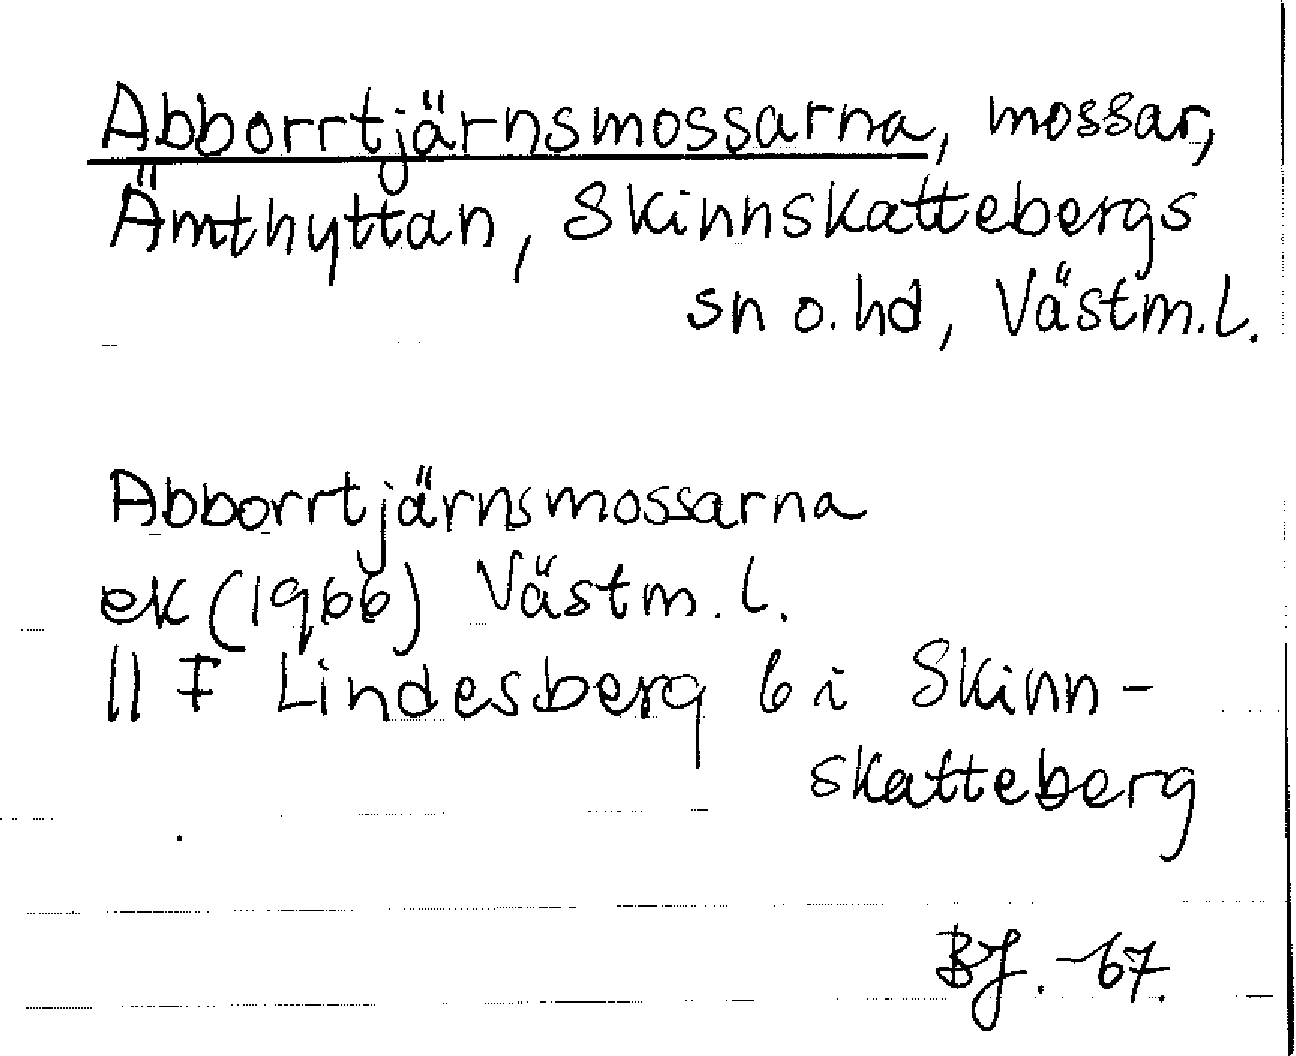 Abborrtjärnsmossarna, mossar,
Ämthyttan, Skinnskattebergs
sn o. hd, Västm. l.
Abborrtjärnsmossarna
ek (1966) Västm. l.
11 F Lindesberg 6 i Skinn-
skatteberg
BJ. -67.